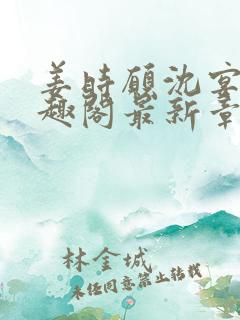 姜时愿沈宴
趣阁最新章
林金城
未经同意禁止转载